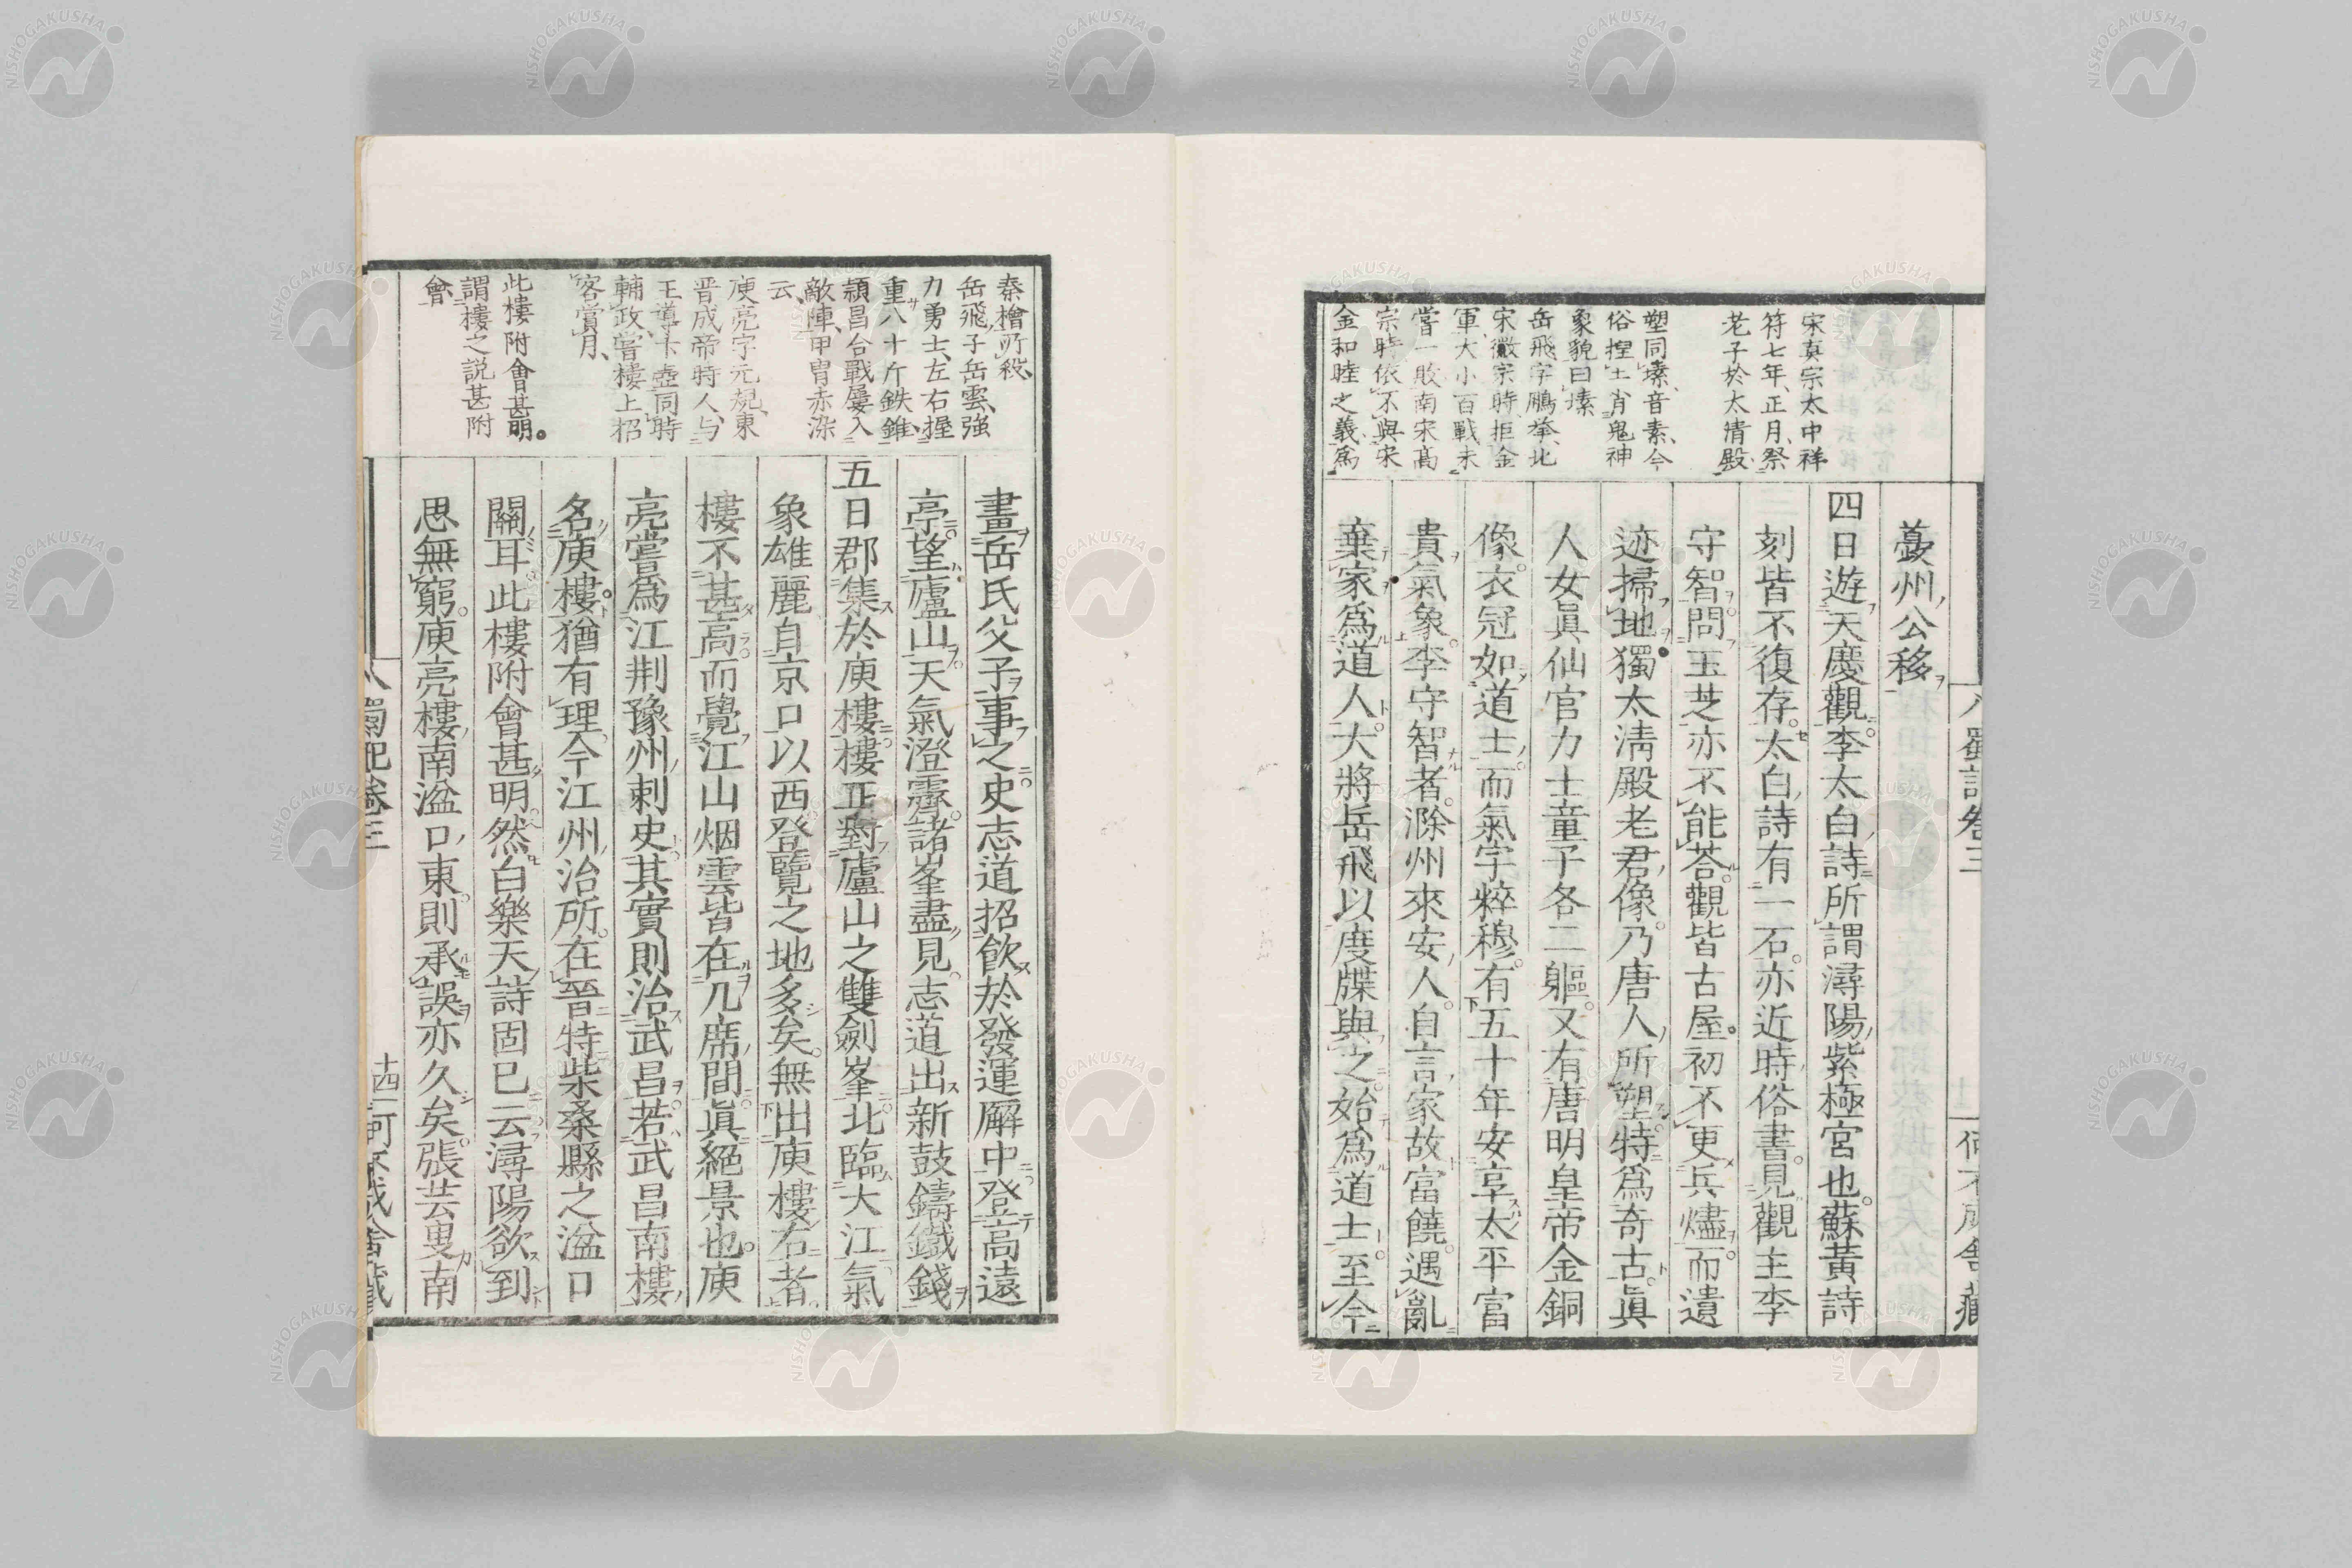 夔州公移
四日遊天慶觀李太白詩所謂潯陽紫極宮也蘇黃詩
刻皆不復存太白詩有一石亦近時俗書見觀主李
守智問玉芝亦不能荅觀皆古屋初不更兵燼而遺
迹掃地獨太淸殿老君像乃唐人所塑特爲奇古眞
人女眞仙官力士童子各二軀又有唐明皇帝金銅
像衣冠如道士而氣宇粹穆有五十年安享太平富
貴氣象李守智者滁州來安人自言家故富饒遇亂
棄家爲道人大將岳飛以度牒與之始爲道士至今
宋真宗太中祥
符七年正月祭
老子於太清殿
塑同塐音素今
俗捏土肖鬼神
象貌曰塐
岳飛字鵬挙北
宋徽宗時拒金
軍大小百戰未
嘗一敗南宋高
宗時依不與宋
金和睦之義爲
八蜀記卷三
畫岳氏父子事之史志道招飮於發運廨中登高遠
亭望廬山天氣澄霽諸峯盡見志道出新鼓鑄鐵錢
五日郡集於庾樓樓正對廬山之雙劍峯北臨大江氣
象雄麗自京口以西登覽之地多矣無出庾樓右者
樓不甚高而覺江山烟雲皆在几席間眞絕景也庾
亮嘗爲江荆豫州刺史其實則治武昌若武昌南樓
名庾樓猶有理今江州治所在晉特柴桑縣之湓口
關耳此樓附會甚明然白樂天詩固已云潯陽欲到
思無窮庾亮樓南湓口東則承誤亦久矣張芸叟南
秦檜所殺
岳飛子岳雲強
力勇士左右握
重八十斤鉄錐
頴昌合戰屢入
敵陣甲冑赤染
云
庾亮字元規東
晋成帝時人与
王導卞壺同時
輔政嘗樓上招
客賞月
此樓附會甚明。
謂樓之説甚附
會
十四